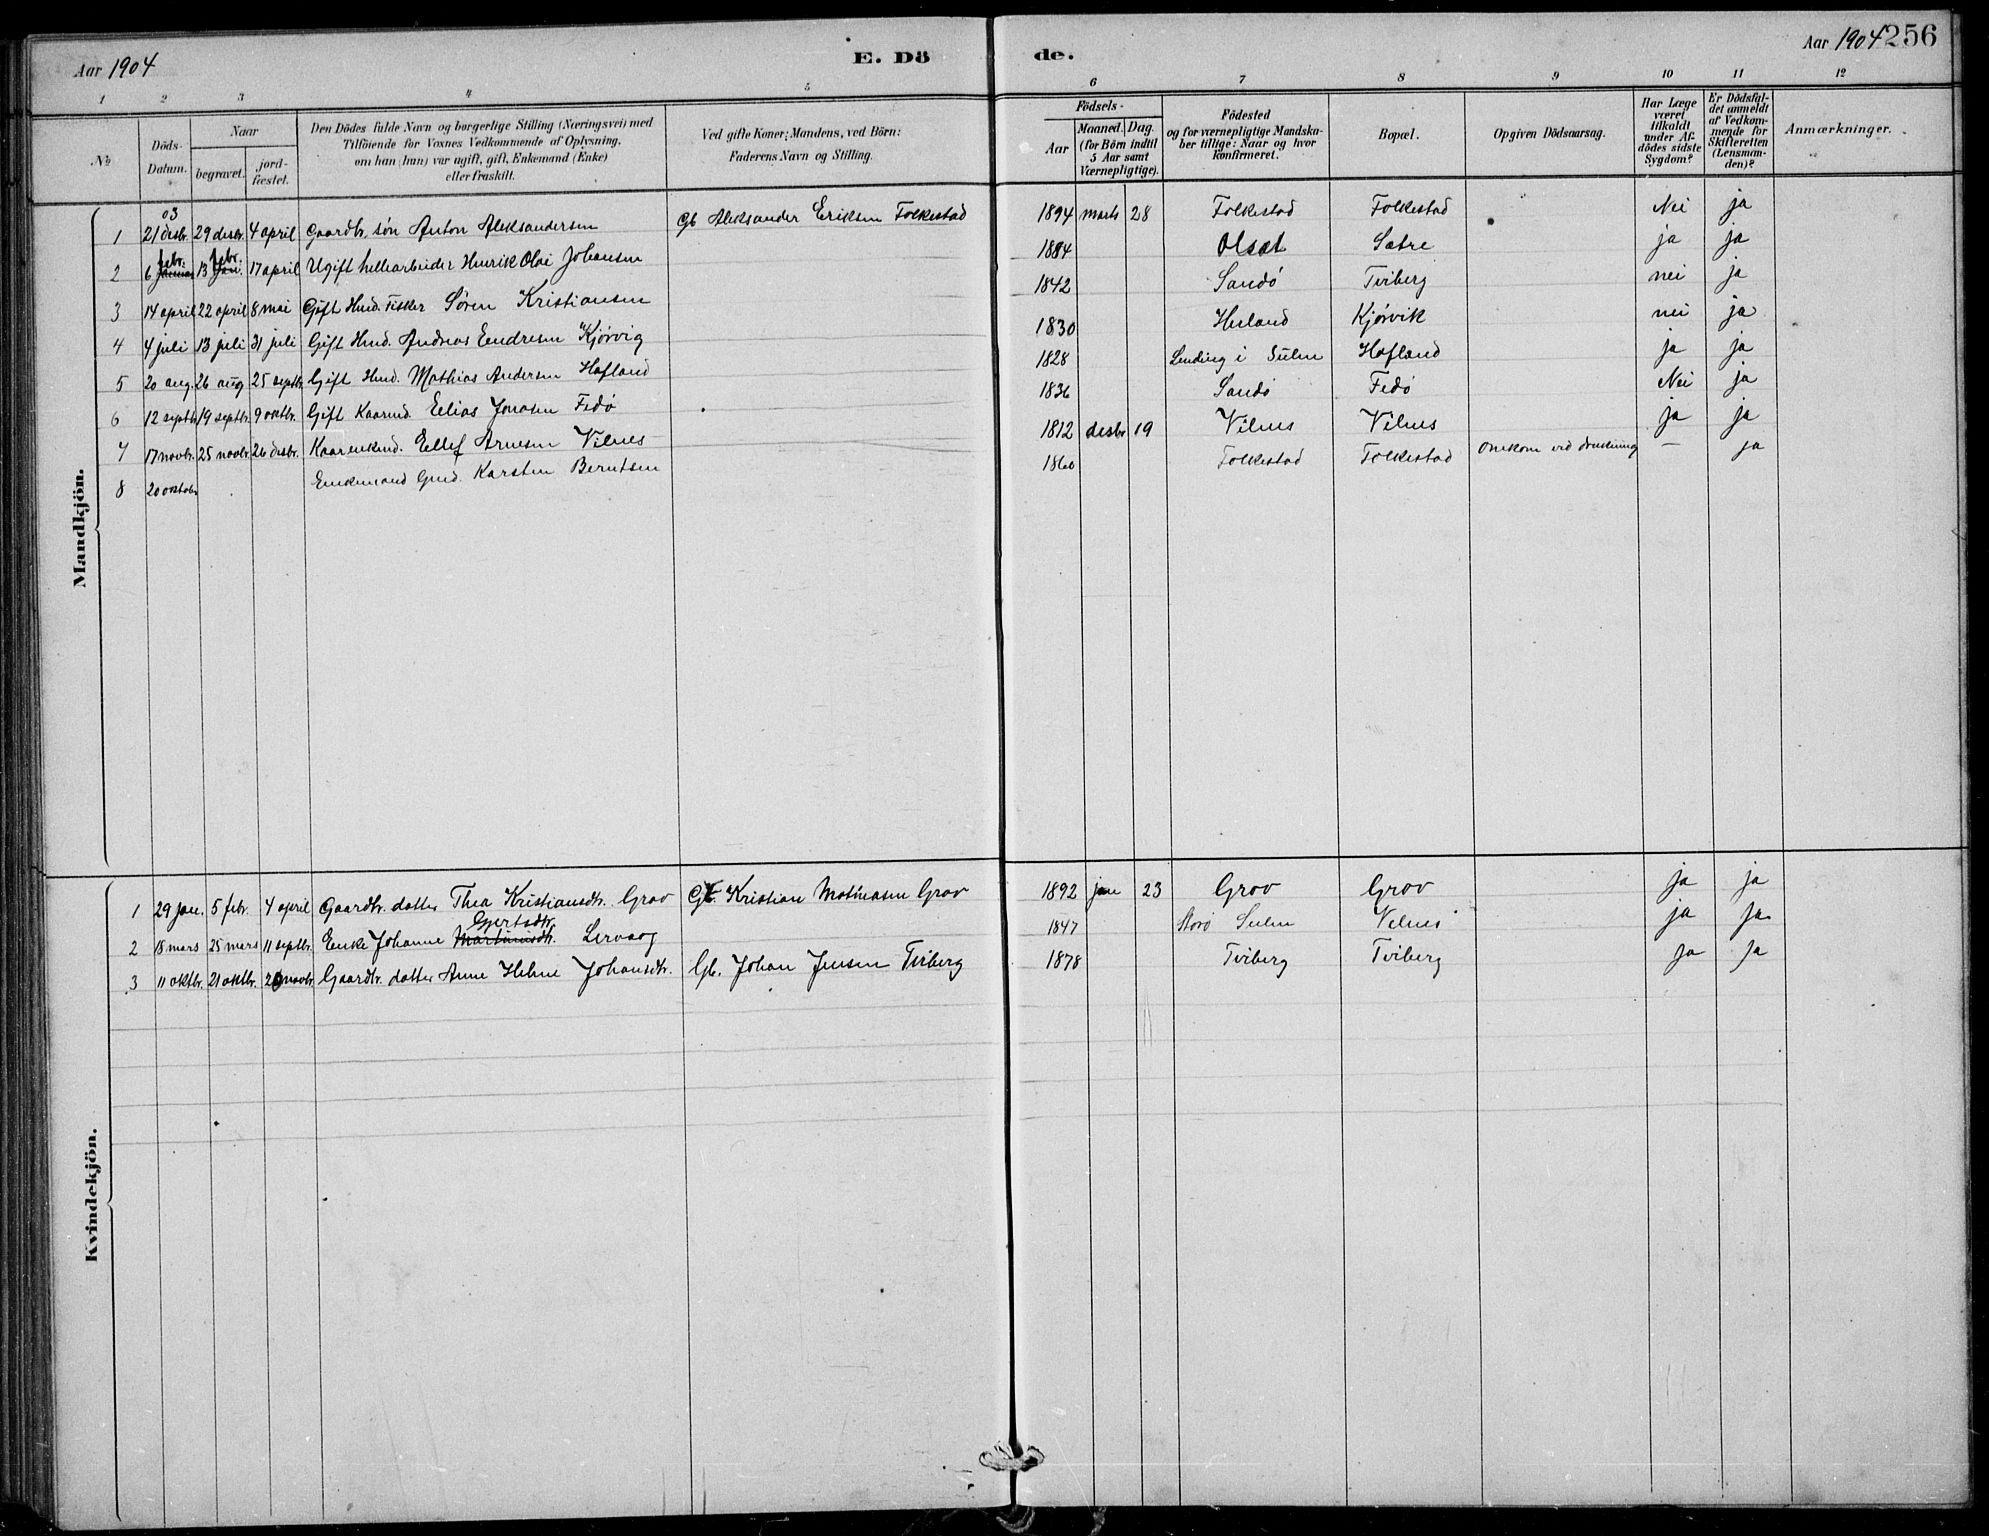 Aar 1904
E. Dö
de.
Aar 1904
256
1 2 3 4 5 6 7 8 9 10 11 12
№
Döds-Datum.
Naar
begravet.
jord-fæstet.
Den Dödes fulde Navn og borgerlige Stilling (Næringsvei) med
Tilföiende for Voxnes Vedkommende af Oplysning,
om han (hun) var ugift, gift, Enkemand (Enke)
eller fraskilt.
Ved gifte Koner: Mandens, ved Börn:
Faderens Navn og Stilling.
Födsels-
Aar
Maaned. Dag.
(for Börn indtil
5 Aar samt
Værnepligtige).
Födested
og for værnepligtige Mandska-
ber tillige: Naar og hvor
konfirmeret.
Bopæl.
Opgiven Dödsaarsag.
Har Læge
været
tilkaldt
under Af-
dödes sidste
Sygdom?
Er Dödsfal-
det anmeldt
af Vedkom-
mende for
Skifteretten
(Lensman-
den)?
Anmærkninger.
Mandkjön.
03
1 21 desbr. 29 desbr. 4 april Gaardbr. søn Anton Aleksandersen Gb Aleksander Eriksen Folkestad 1894 marts 28 Folkestad Folkestad Nei ja
febr. febr.
2 6 Januar 13 Jan. 17 april Ugift hellearbeider Henrik Olai Johansen 1884 Olset Sætre ja ja
3 14 april 22 april 8 mai Gift Hmd. Fisker Søren Kristiansen 1842 Sandø Tviberg nei ja
4 4 juli 13 juli 31 juli Gift Hmd. Andreas Endresen Kjørvig 1830 Husland Kjørvik nei ja
5 20 aug. 26 aug 25 septbr. Gift Hmd. Mathias Andersen Hafland 1828 Lending i Sulen Hafland ja ja
6 12 septbr. 19 septbr. 9 oktbr. Gift Kaarmd. Elias Jonasen Fedø 1836 Sandø Fedø Nei ja
7 17 novbr. 25 novbr. 26 desbr. Kaarenkmd. Ellef Arnesen Vilnes 1812 desbr 19 Vilnes Vilnes ja ja
8 20 oktobr Enkemand Gmd. Karsten Berntsen 1860 Folkestad Folkestad Omkom ved drukning — ja
Kvindekjön.
1 29 jan. 5 febr. 4 april Gaardbr. datter Thea Kristiansdtr. Grov Gb. Kristian Mathiasen Grov 1892 jan 23 Grov Grov ja ja
Gjertsdtr.
2 18 mars 25 mars 11 septbr. Enke Johanne Martinusdtr. Lervaag 1847 Storø Sulen Vilnes ja ja
3 11 oktbr. 21 oktbr. 20 novbr. Gaardbr. datter Anne Helene Johansdtr. Gb. Johan Jensen Tviberg 1878 Tviberg Tviberg ja ja